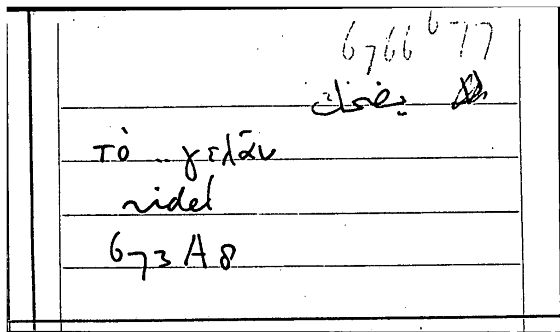 6766 677
يضحك
τὸ .. γελᾶν
ridel
673 A 8